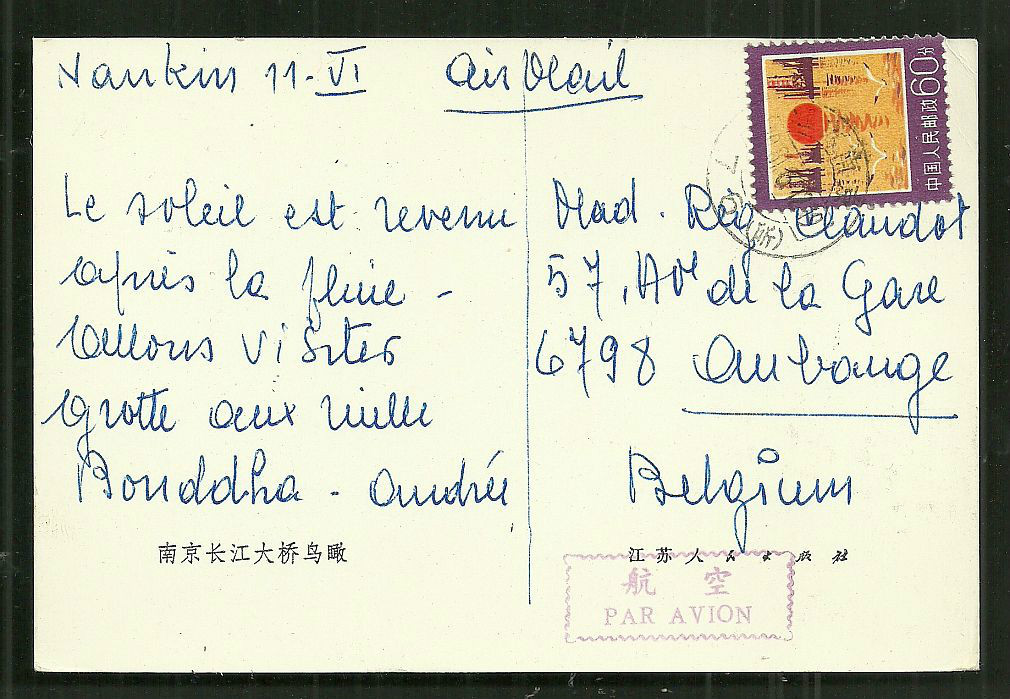 Nankin 11-VI
Air Mail
Le soleil est revenu
après la pluie -
Allons visiter
grotte aux mille
Bouddha - Andrée
南京长江大桥鸟瞰
中国人民邮政 60分
Mad. Rég Claudot
57, Ave de la Gare
6798 Aubange
Belgium
江苏人民出版社
航空
PAR AVION